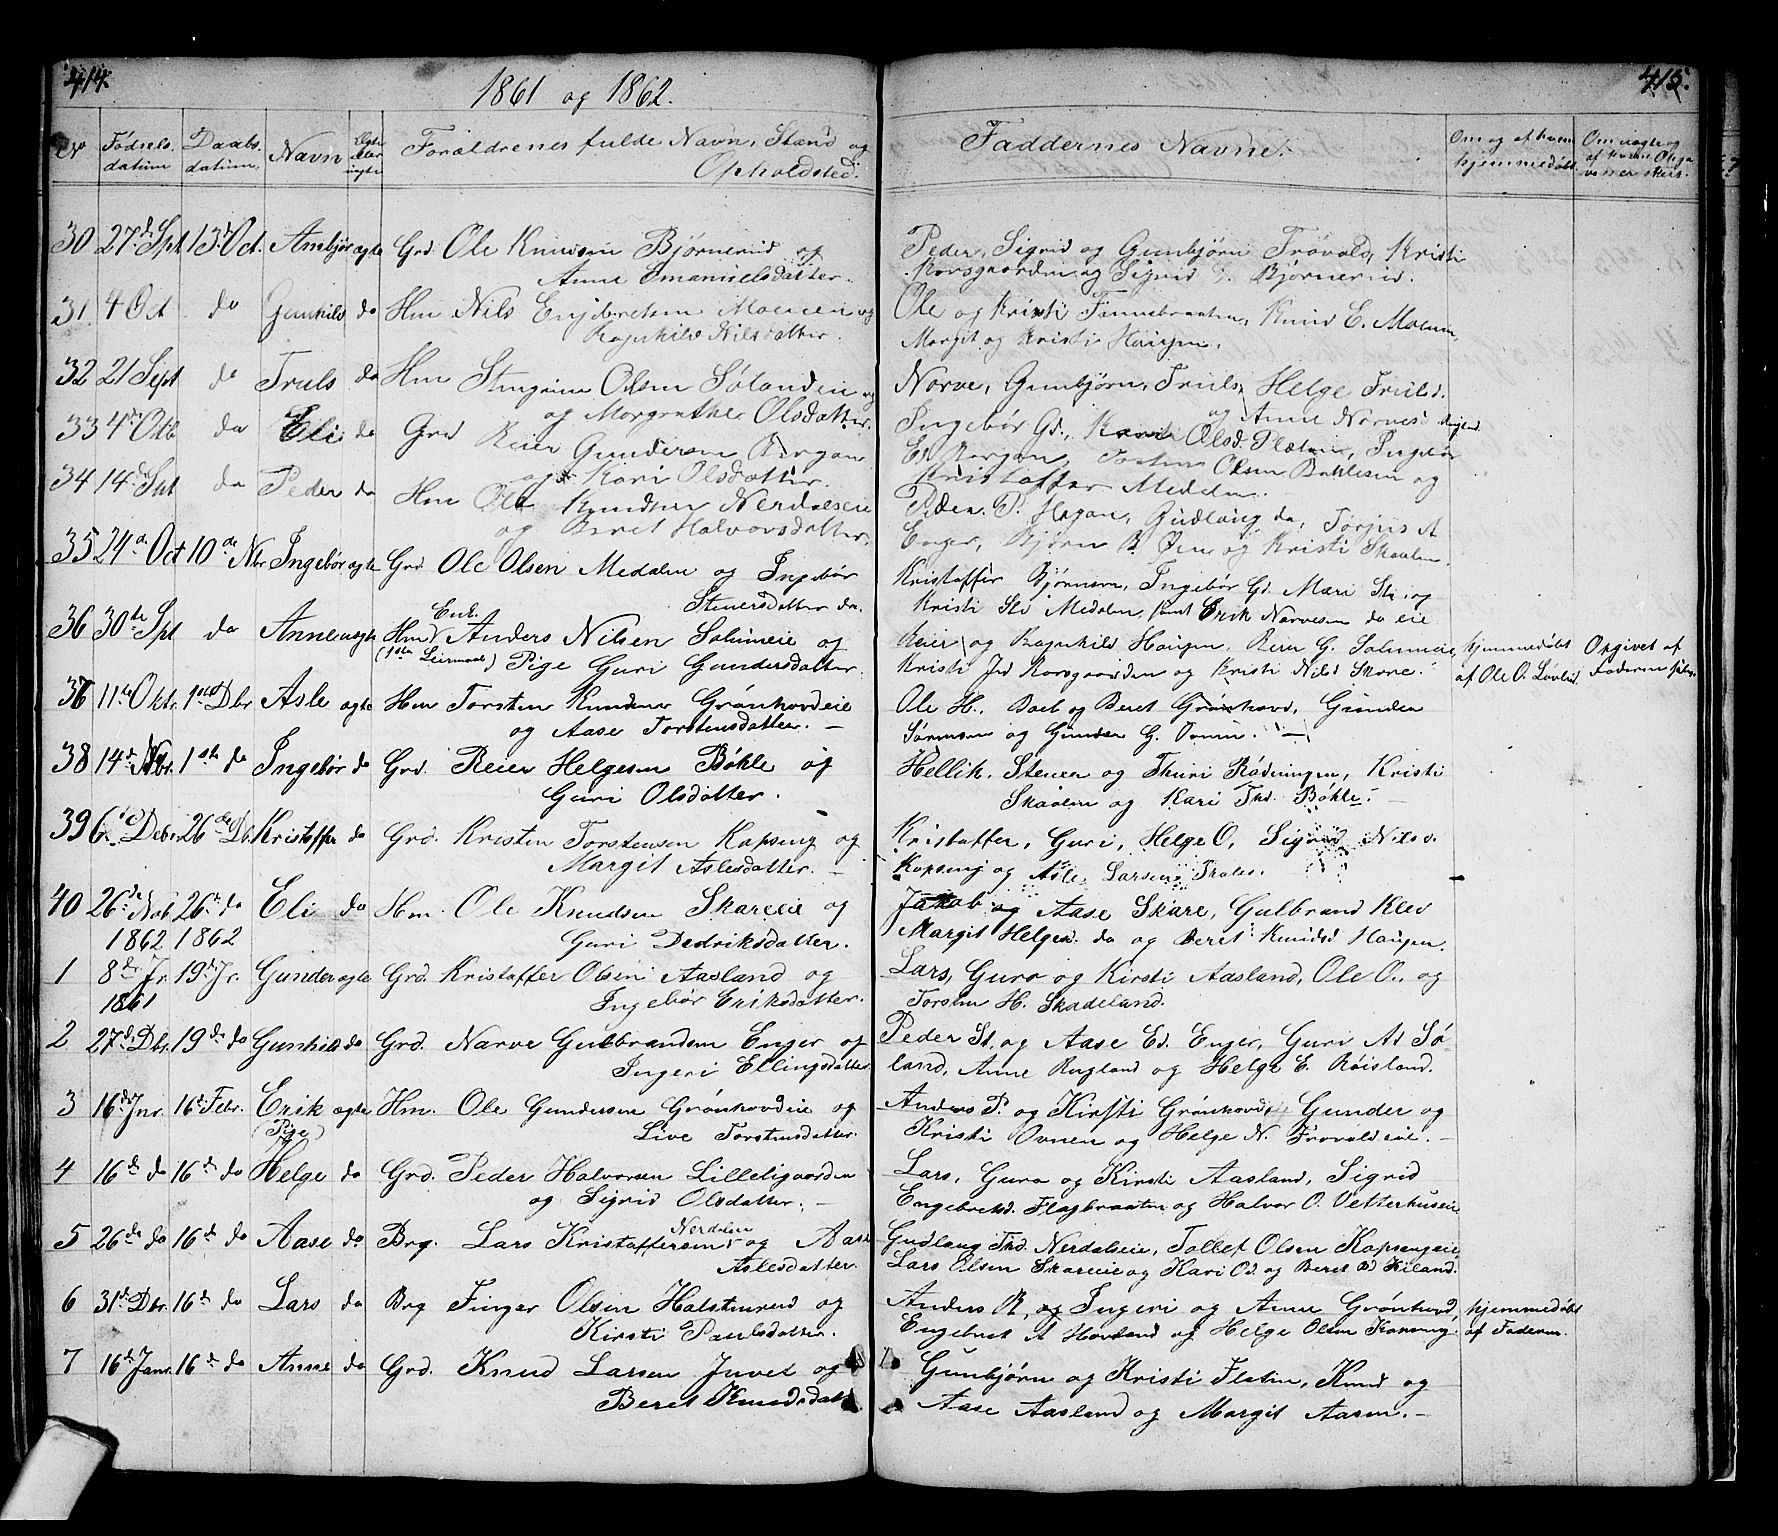 414.
1861 og 1862.
No Fødsels datum Daabs datum Navn Egte eller uegte Forældrenes fulde Navn, Stand og Opholdsted.
30 27de Spt 13d Oct. Anbjør egte Grd Ole Knudsen Bjørnerud og
Anne Emanuelsdatter.
31. 4 Oct do Gunhild do Hm Nils Engebretsen Moeneie og
Ragnhild Nilsdatter.
32 21 Sept do Truls do Hm Stengrim Olsen Sølandeie og
og Morgrethe Olsdatter.
33 4de Octb do Eli do Grd Reier Gundersen Rorgan
og Kari Olsdatter.
34 14de Spt do Peder do Hm Ole Knudsen Nerdalseie
og Beret Halvorsdatter.
35 24de Oct 10de Nbr Ingebør egte Grd Ole Olsen Medalen og Ingebør
Steuersdatter do.
36 30te Spt do Anne uegte Hm Enk. Anders Nilsen Solumeie og
(1ste Leiermaal) Pige Guri Gundersdatter.
37 11te Oktr. 1ste Dbr Asle egte Hm Torsten Knudsen Grønhovdeie
og Aase Torstensdatter. —
38 14de Nbr. 1ste do Ingebør do Grd. Reier Helgesen Bøhle og
Guri Olsdatter.
39 6te Debr. 26de Db. Kristoffer do Grd. Kristen Torstensen Kopseng og
Margit Aslesdatter. —
40 26de Nob 26de do Eli do Hm. Ole Knudsen Skareeie og
1862 1862 Guri Dedriksdatter.
1 8de Jr. 19de Jr. Gunder egte Grd. Kristoffer Olsen Aasland og
1861 Ingebør Eriksdatter.
2 27de Dbr. 19de do Gunhild do Grd. Narve Gulbrandsen Enger og
Ingeri Ellingsdatter
3 16de Jnr. 16de Febr. Erik egte Hm. Ole Gundersen Grønhovdeie og
(Pige) Live Torstensdatter.
4 16de do 16de do Helge do Grd. Peder Halvorsen Lilleligaarden
og Sigrid Olsdatter. —
5 26de do 16de do Aase do Brg. Lars Kristoffersen Nerdalen og Aase
Aslesdatter.
6 31de Dbr. 16de do Lars do Brg Finger Olsen Halstenrud og
Kirsti Paulsdatter.
7 16de Janr. 16de do Anne do Grd. Knud Larsen Juvet og
Beret Knudsdat
415.
Faddernes Navne. Om og af hvem hjemmedøbt. Om uægte og af hvem Opgavener skeet.
Peder, Sigrid og Gunbjørn Trøvold, Kristi
Korsgaarden og Sigrid Bjørnerud.
Ole og Kristi Finnebraaten, Knud E. Moeneie
Margit og Kristi Haugen.
Narve, Gunbjørn, Truls, Helge Trulsd.
og Anne Narvesd. Rugland.
Ingebør Gd., Olsd. Flaten, Ingebør
Ed Rorgan, Olsen Bøhleseie og
Kristoffer Medalen.
Peder P. Hagan, Gudlaug do, Torjus A
Enger, Bjørn B. Øen og Kristi Skaalen.
Kristoffer Bjørnsen, Ingebør Gd. Mari St. og
Kristi Medalen, Erik Narvesen do eie
Reier og Ragnhild Haugen, Reier G. Solumeie, hjemmedøbt Opgivet af
Kristi Jnd Korsgaarden og Kristi Nilsd Skare. af Ole O. Løvlid. Faderen
Ole H. Boeb og Beret Grønhovd, Gunder
Sørensen og Gunder G. Ovnen. —
Hellik. Steuer og Thuri Rødningen, Kristi
Skaalen og Kari Thd. Bøhle. —
Kristoffer, Guri, Helge O, Sigrid Nilsd.
Kopseng og Asle Larsen Trales. —
Jakob og Aase Skare, Gulbrand Klev
Margit Helgesd. do og Beret Knudsd Haugen.
Lars, Guro og Kirsti Aasland, Ole O. og
Torsten H. Skadeland.
Peder St. og Aase Ed. Enger, Guri At Sø-
land, Anne Rugland og Helge E. Røisland.
Anders P. og Kirsti Grønhovd, Gunder og
Kristi Ovnen og Helge N. Trovoldeie. —
Lars, Guro og Kirsti Aasland, Sigrid
Engebretsd. Flagbraaten og Halvor O. Vetterhuseie
Gudlaug Thd. Nerdalseie, Tollef Olsen Kopsengeie,
Lars Olsen Skareeie og Kari Od. og Beret Bd Kiland.
Anders R, og Ingeri og Anne Grønhovd, hjemmedøbt
Engebret A Hovland og Helge Olsen Kopseng. af Faderen.
Gunbjørn og Kristi Flaten, Knud og
Aase Aasland og Margit Aasen. —